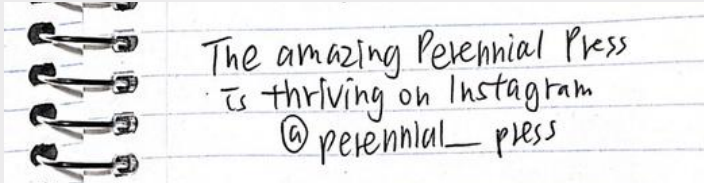 The amazing Perennial Press
is thriving on Instagram
@perennial_ press